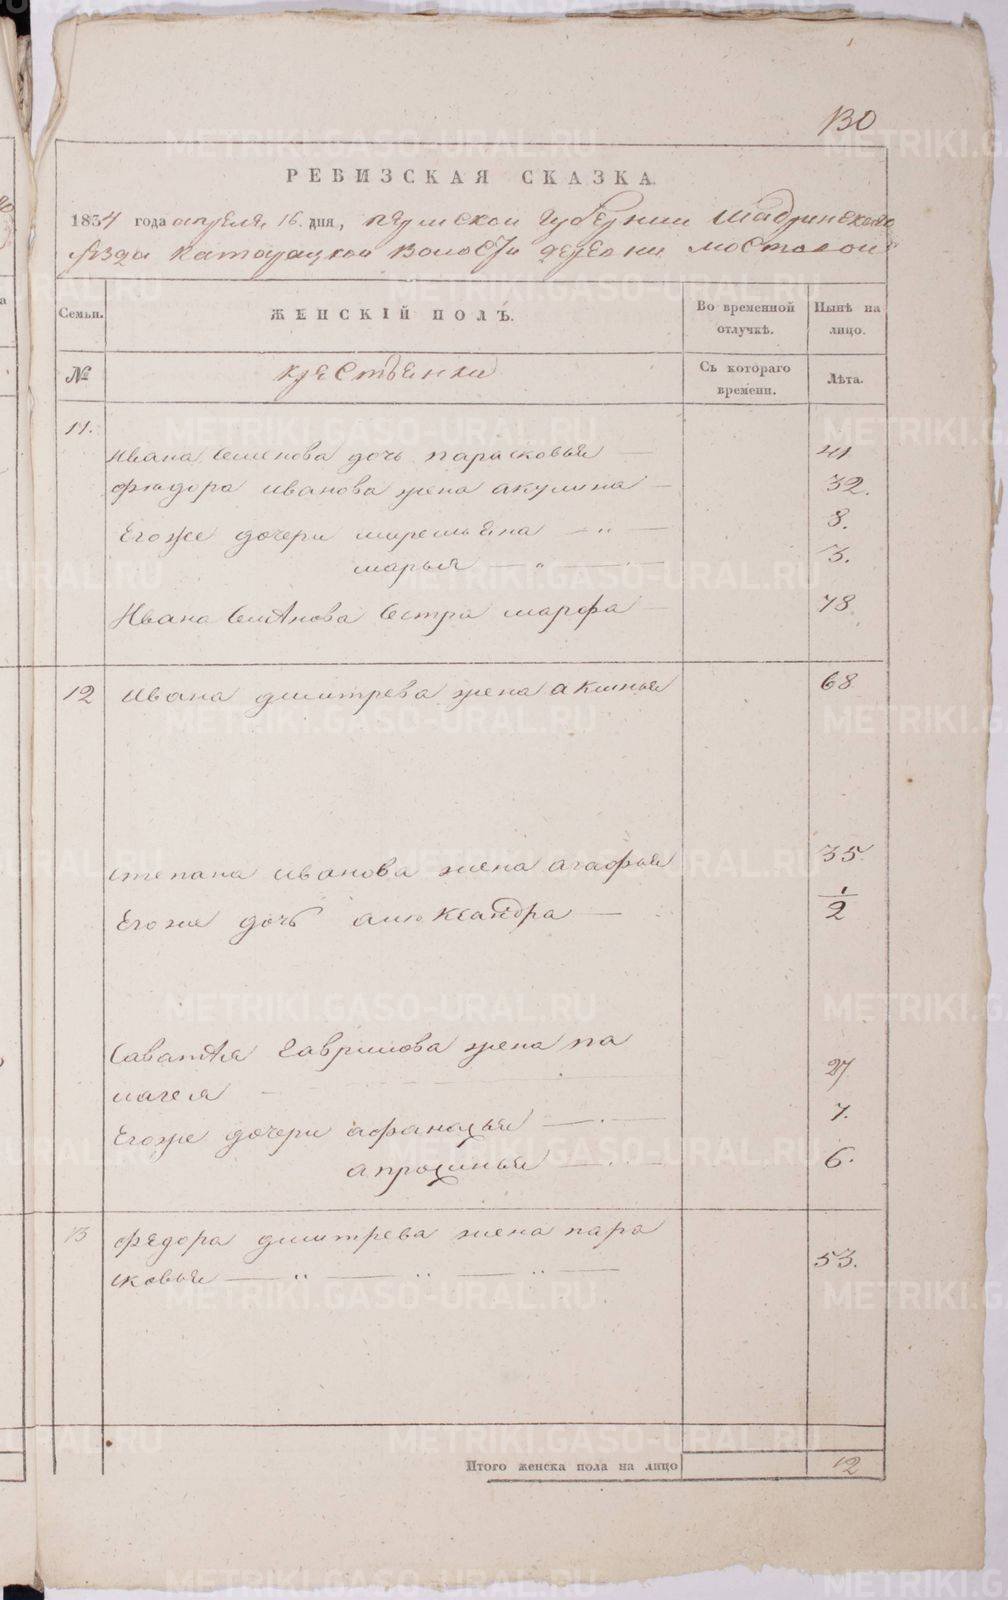 130
РЕВИЗСКАЯ СКАЗКА.
1834 года апреля 16. дня, пермской губернии Шадринскаго
уезда Каторацкой волости деревни мостовой
Семьи. ЖЕНСКІЙ ПОЛЪ. Во временной отлучкѣ. Нынѣ на лицо.
№ крестьенки Съ котораго времени. Лѣта.
11.
Ивана Семенова дочь парасковья — 41
фиодора иванова жена акулина — 32.
Егоже дочери 8.
марья — 3.
Ивана Семѣнова Сестра марфа — 78
12 ивана дмитрева жена аксинья 68
степана иванова жена агафья 35.
Егоже дочь аликсандра — 1/2
Саватѣя Гаврилова жена па
лагея — 27
Егоже дочери афанасья — 7.
апросинья — 6.
13 федора дмитрева жена пара
сковья — 53.
Итого женска пола на лицо 12
METRIKI.GASO-URAL.RU